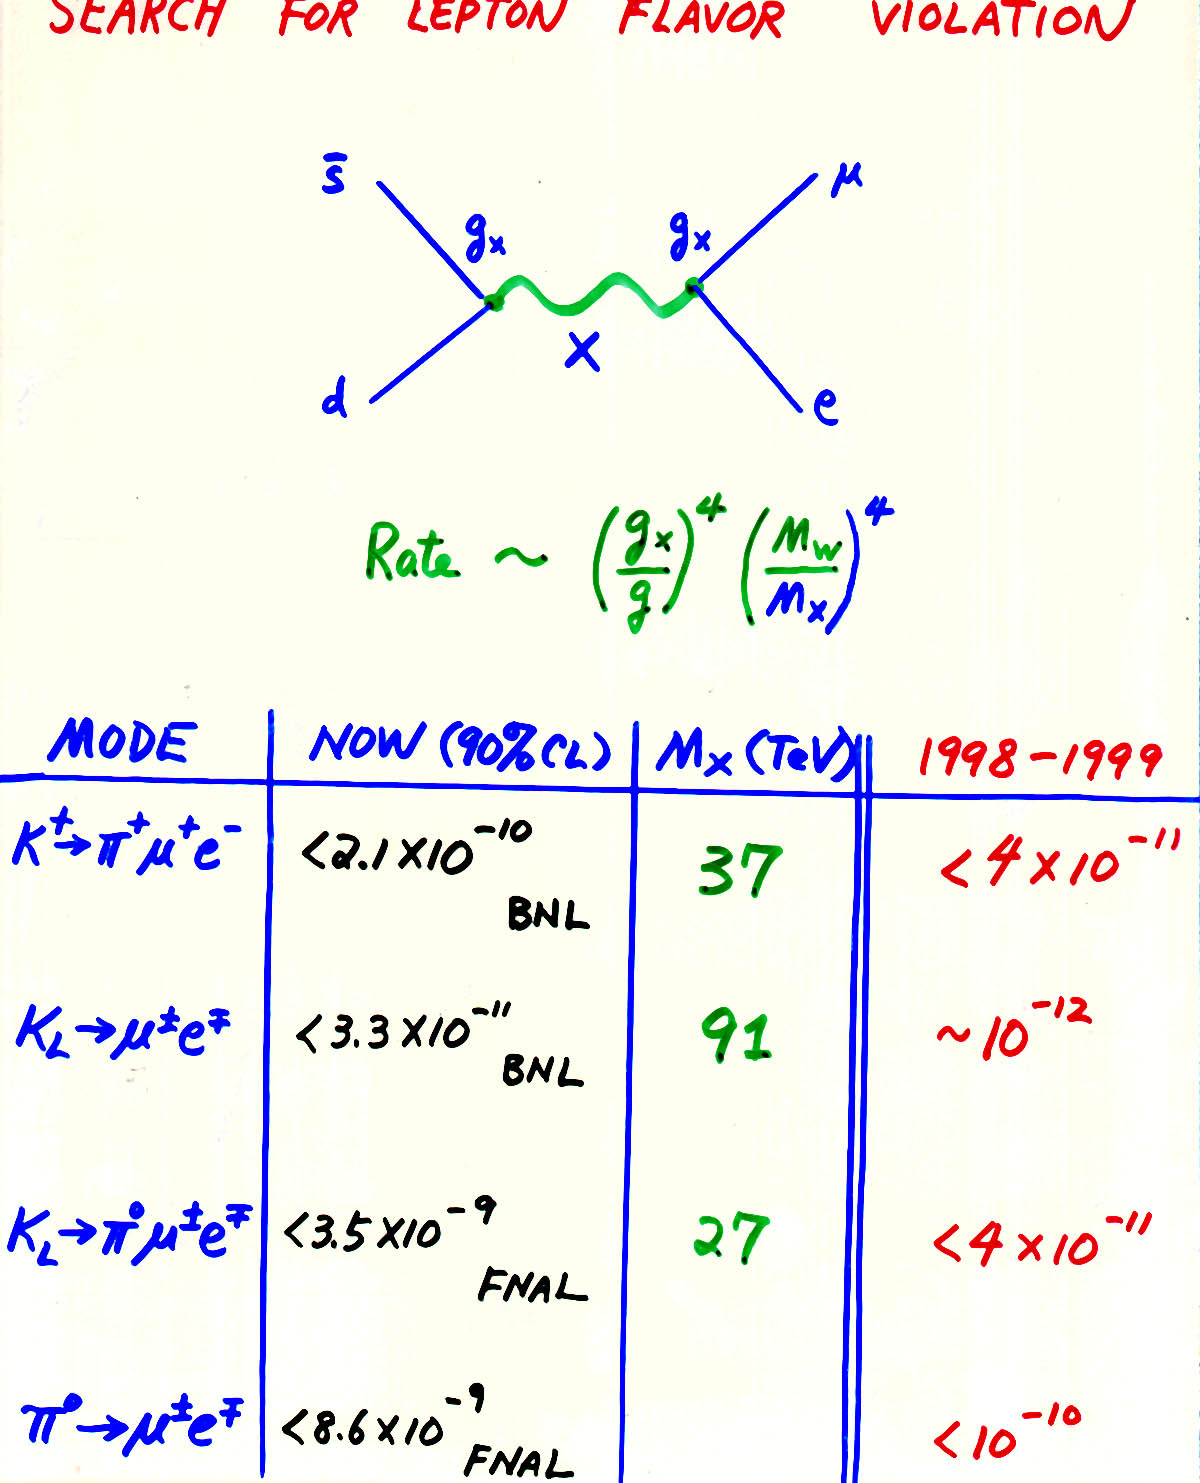 SEARCH FOR LEPTON FLAVOR VIOLATION
s̄ μ
gₓ gₓ
X
d e
Rate ~ (gₓ/g)⁴ (M_W/Mₓ)⁴
MODE NOW (90% CL) Mₓ (TeV) 1998-1999
K⁺→π⁺μ⁺e⁻ <2.1×10⁻¹⁰ 37 <4×10⁻¹¹
BNL
K_L→μ±e∓ <3.3×10⁻¹¹ 91 ~10⁻¹²
BNL
K_L→π⁰μ±e∓ <3.5×10⁻⁹ 27 <4×10⁻¹¹
FNAL
π⁰→μ±e∓ <8.6×10⁻⁹ <10⁻¹⁰
FNAL